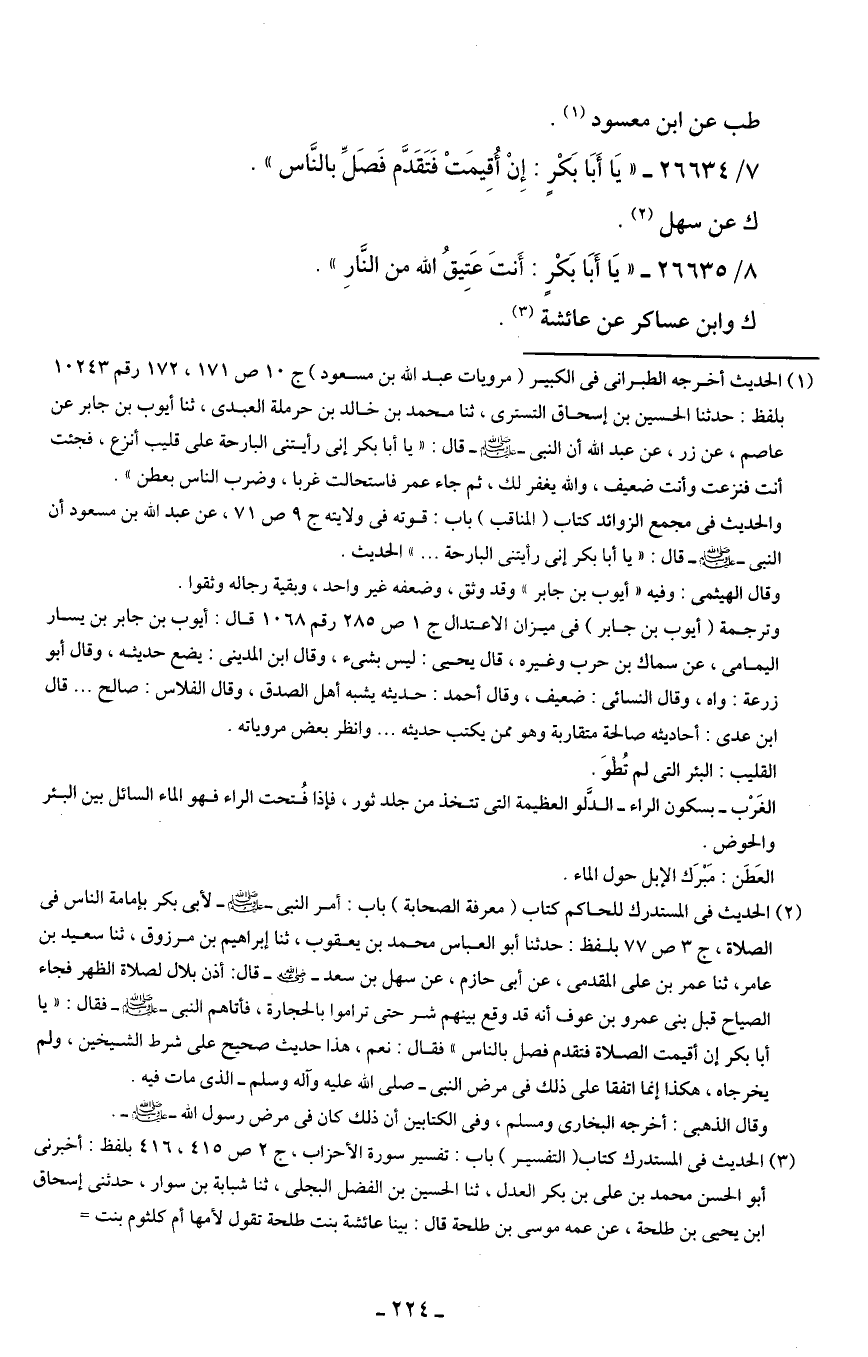 طب عن ابن معسود (١) .
٧/ ٢٦٦٣٤ ـ « يَا أَبَا بَكْرٍ : إِنْ أُقِيمَتْ فَتَقَدَّم فَصَلِّ بالنَّاس » .
ك عن سهل (٢) .
٨/ ٢٦٦٣٥ ـ « يَا أَبَا بَكْرٍ : أَنتَ عَتِيقُ الله من النَّارِ » .
ك وابن عساكر عن عائشة (٣) .
(١) الحديث أخرجه الطبرانى فى الكبير ( مرويات عبد الله بن مسعود ) ج ١٠ ص ١٧١ ، ١٧٢ رقم ١٠٢٤٣
بلفظ : حدثنا الحسين بن إسحاق التسترى ، ثنا محمد بن خالد بن حرملة العبدى ، ثنا أيوب بن جابر عن
عاصم ، عن زر ، عن عبد الله أن النبى ـ ﷺ ـ قال : « يا أبا بكر إنى رأيتنى البارحة على قليب أنزع ، فجئت
أنت فنزعت وأنت ضعيف ، والله يغفر لك ، ثم جاء عمر فاستحالت غربا ، وضرب الناس بعطن » .
والحديث فى مجمع الزوائد كتاب ( المناقب ) باب : قوته فى ولايته ج ٩ ص ٧١ ، عن عبد الله بن مسعود أن
النبى ـ ﷺ ـ قال : « يا أبا بكر إنى رأيتنى البارحة ... » الحديث .
وقال الهيثمى : وفيه « أيوب بن جابر » وقد وثق ، وضعفه غير واحد ، وبقية رجاله وثقوا .
وترجمة ( أيوب بن جابر ) فى ميزان الاعتدال ج ١ ص ٢٨٥ رقم ١٠٦٨ قال : أيوب بن جابر بن يسار
اليمامى ، عن سماك بن حرب وغيره ، قال يحيى : ليس بشىء ، وقال ابن المدينى : يضع حديثه ، وقال أبو
زرعة : واه ، وقال النسائى : ضعيف ، وقال أحمد : حديثه يشبه أهل الصدق ، وقال الفلاس : صالح ... قال
ابن عدى : أحاديثه صالحة متقاربة وهو ممن يكتب حديثه ... وانظر بعض مروياته .
القليب : البئر التى لم تُطْوَ .
الغَرْب ـ بسكون الراء ـ الدَّلو العظيمة التى تتخذ من جلد ثور ، فإذا فُتحت الراء فهو الماء السائل بين البئر
والحوض .
العَطَن : مَبْرَك الإبل حول الماء .
(٢) الحديث فى المستدرك للحاكم كتاب ( معرفة الصحابة ) باب : أمر النبى ـ ﷺ ـ لأبى بكر بإمامة الناس فى
الصلاة ، ج ٣ ص ٧٧ بلفظ : حدثنا أبو العباس محمد بن يعقوب ، ثنا إبراهيم بن مرزوق ، ثنا سعيد بن
عامر، ثنا عمر بن على المقدمى ، عن أبى حازم ، عن سهل بن سعد ـ رضي الله عنه ـ قال: أذن بلال لصلاة الظهر فجاء
الصياح قبل بنى عمرو بن عوف أنه قد وقع بينهم شر حتى تراموا بالحجارة ، فأتاهم النبى ـ ﷺ ـ فقال : « يا
أبا بكر إن أقيمت الصلاة فتقدم فصل بالناس » فقال : نعم ، هذا حديث صحيح على شرط الشيخين ، ولم
يخرجاه ، هكذا إنما اتفقا على ذلك فى مرض النبى ـ صلى الله عليه وآله وسلم ـ الذى مات فيه .
وقال الذهبى : أخرجه البخارى ومسلم ، وفى الكتابين أن ذلك كان فى مرض رسول الله ـ ﷺ ـ .
(٣) الحديث فى المستدرك كتاب( التفسير ) باب : تفسير سورة الأحزاب ، ج ٢ ص ٤١٥ ، ٤١٦ بلفظ : أخبرنى
أبو الحسن محمد بن على بن بكر العدل ، ثنا الحسين بن الفضل البجلى ، ثنا شبابة بن سوار ، حدثنى إسحاق
ابن يحيى بن طلحة ، عن عمه موسى بن طلحة قال : بينا عائشة بنت طلحة تقول لأمها أم كلثوم بنت =
ـ ٢٢٤ ـ